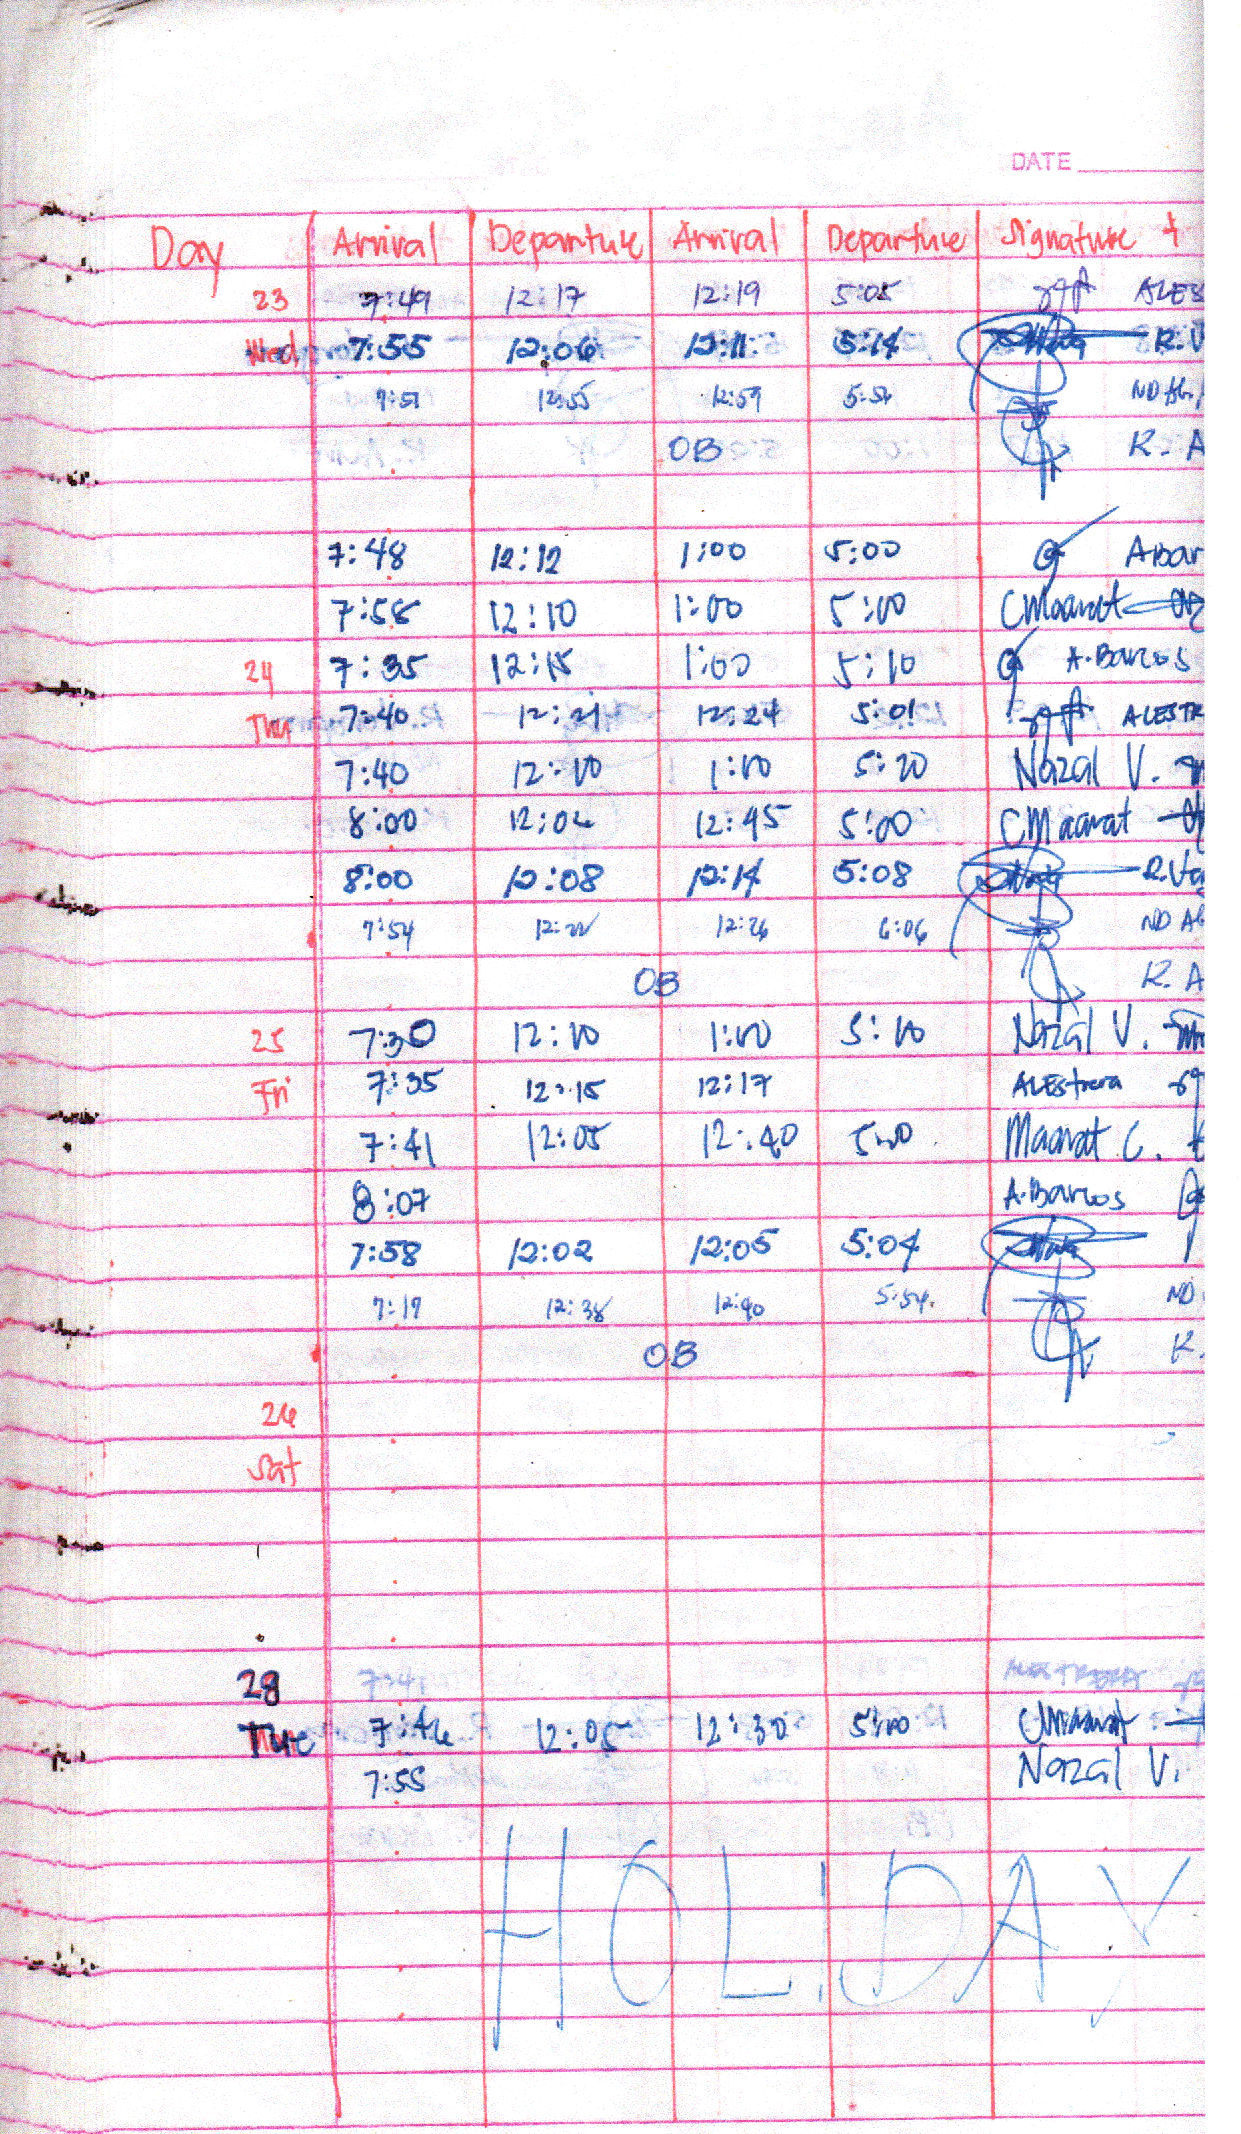 DATE
Day Arrival Departure Arrival Departure Signature +
23 7:49 12:17 12:19 5:05 ALES
Wed 7:55 12:06 12:11 5:14 R.V
7:51 12:55 12:59 5:56 ND Al
OB R. A
7:48 12:12 1:00 5:00 A.bar
7:58 12:10 1:00 5:00 CMaanat
24 7:35 12:15 1:00 5:10 A.Barcos
Thu 7:40 12:21 12:24 5:01 ALESTR
7:40 12:10 1:00 5:20 Nazal V.
8:00 12:02 12:45 5:00 CMaanat
8:00 12:08 12:14 5:08 R.Va
7:54 12:22 12:26 6:06 ND Al
OB R. A
25 7:30 12:10 1:00 5:10 Nazal V.
Fri 7:35 12:15 12:17 ALEstrera
7:41 12:05 12:40 5:00 Maanat C.
8:07 A.Barcos
7:58 12:02 12:05 5:04
7:17 12:38 12:40 5:54 ND
OB K.
26
Sat
28 7:41 ALESTRERA
Tue 7:46 12:05 12:30 5:00 CMaanat
7:55 Nazal V.
HOLIDAY